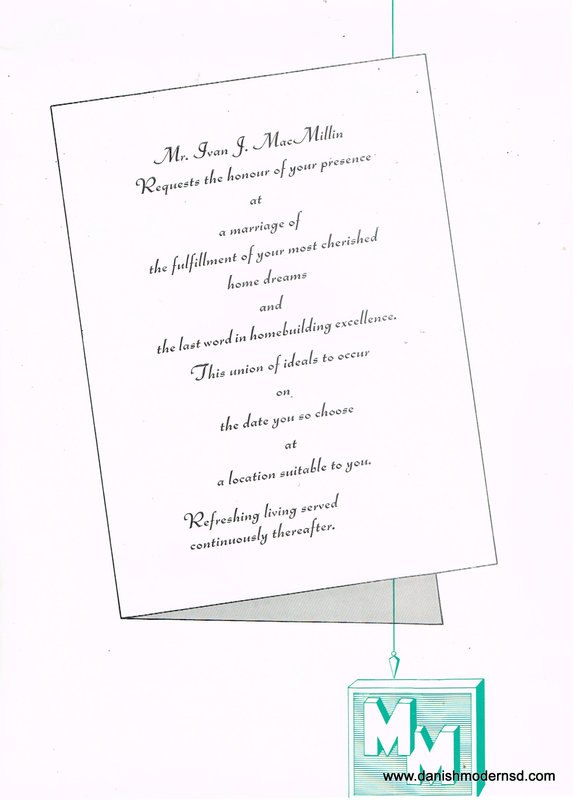 Mr. Ivan J. MacMillin
Requests the honour of your presence
at
a marriage of
the fulfillment of your most cherished
home dreams
and
the last word in homebuilding excellence.
This union of ideals to occur
on
the date you so choose
at
a location suitable to you.
Refreshing living served
continuously thereafter.
M
M
www.danishmodernsd.com